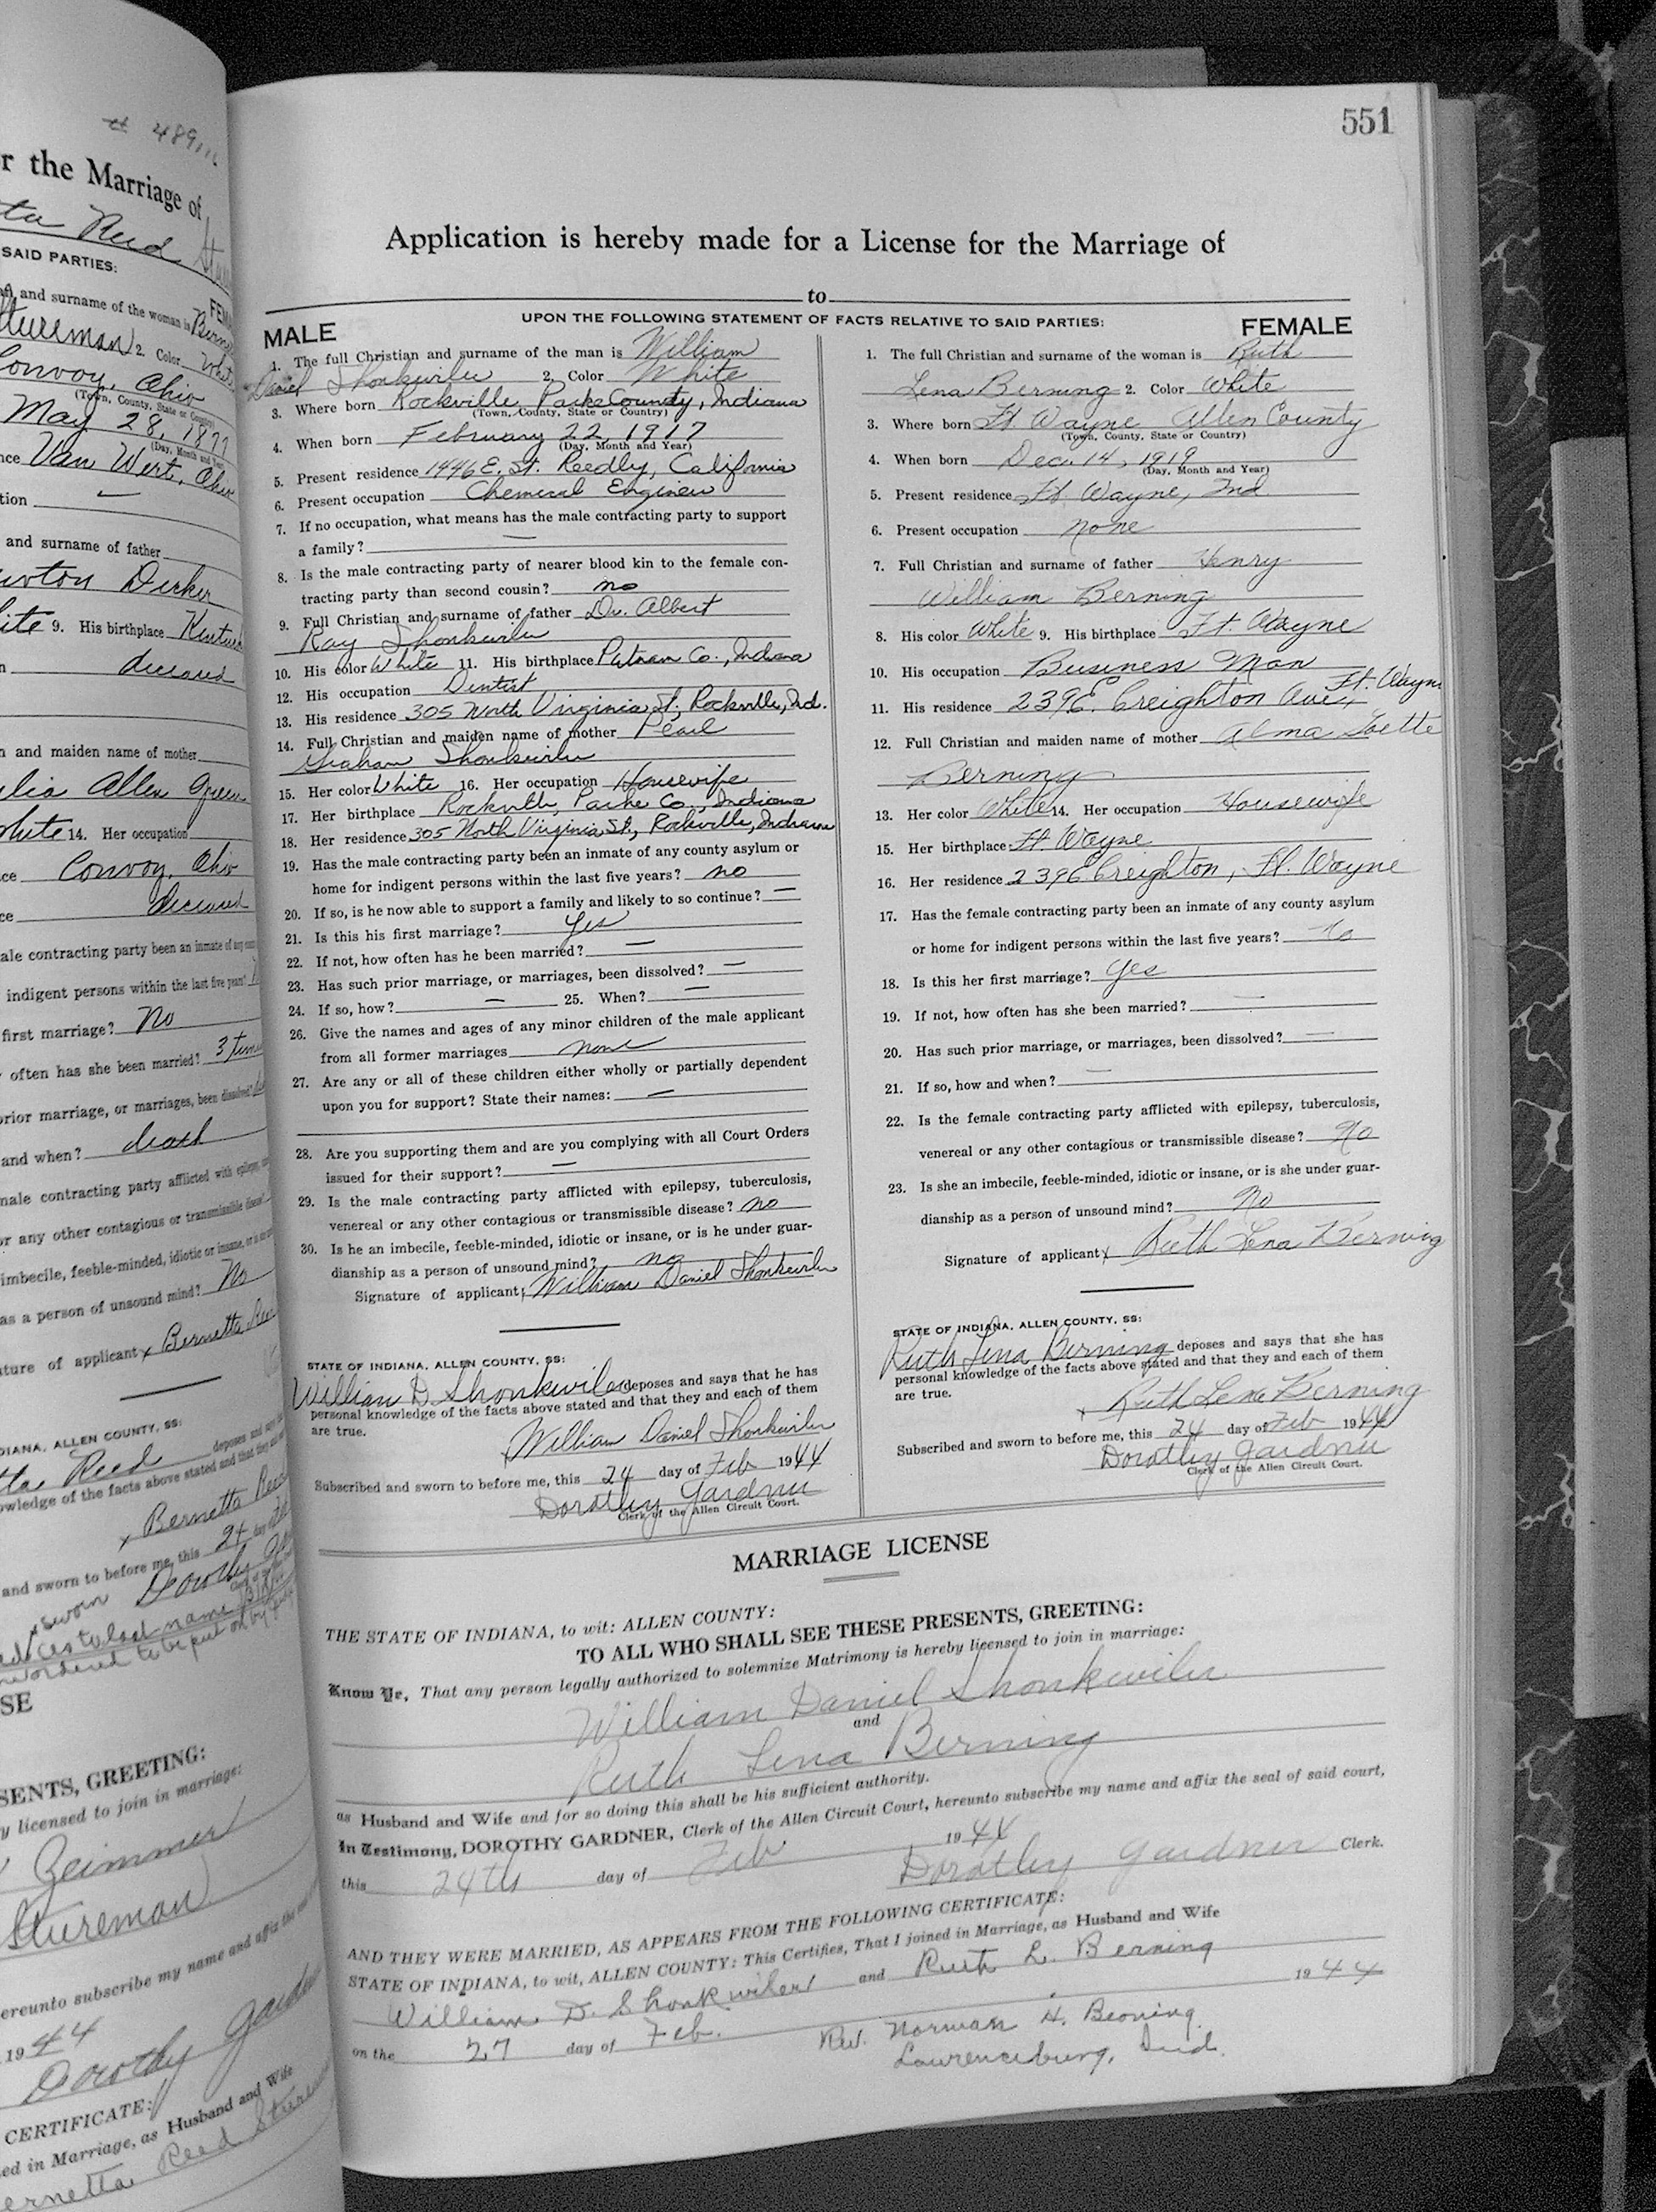 # 489
r the Marriage of
ta Reed
SAID PARTIES:
and surname of the woman is
Stureman 2. Color White
Convoy, Ohio
(Town, County, State or Country)
May 28, 1877
(Day, Month and Year)
nce Van Wert, Ohio
tion —
and surname of father
Newton Decker
ite 9. His birthplace
n deceased
n and maiden name of mother
lia Allen Green
White 14. Her occupation
ce Convoy, Ohio
ce deceased
ale contracting party been an inmate of any
indigent persons within the last five years?
first marriage? No
often has she been married? 3 times
prior marriage, or marriages, been dissolved?
and when? death
male contracting party afflicted with
or any other contagious or transmissible disease?
imbecile, feeble-minded, idiotic or insane, or is
as a person of unsound mind? No
ture of applicant x Bernetta Ree
DIANA, ALLEN COUNTY, SS:
ta Reed deposes and says
owledge of the facts above stated and that they
x Bernetta Ree
and sworn to before me, this 24
Dorothy
SE
SENTS, GREETING:
y licensed to join in marriage:
Zeimmer
Stureman
ereunto subscribe my name and affix the
1944
Dorothy Gardner
CERTIFICATE:
ed in Marriage, as Husband and Wife
ernetta Reed
551
Application is hereby made for a License for the Marriage of
to
UPON THE FOLLOWING STATEMENT OF FACTS RELATIVE TO SAID PARTIES:
MALE
1. The full Christian and surname of the man is William
Daniel Shonkwiler 2. Color White
3. Where born Rockville, Parke County, Indiana
(Town, County, State or Country)
4. When born February 22, 1917
(Day, Month and Year)
5. Present residence 1446 E. St. Reedly, California
6. Present occupation Chemical Engineer
7. If no occupation, what means has the male contracting party to support
a family? —
8. Is the male contracting party of nearer blood kin to the female con-
tracting party than second cousin? no
9. Full Christian and surname of father Dr. Albert
Ray Shonkwiler
10. His color White 11. His birthplace Putnam Co., Indiana
12. His occupation Dentist
13. His residence 305 North Virginia St., Rockville, Ind.
14. Full Christian and maiden name of mother Pearl
Graham Shonkwiler
15. Her color White 16. Her occupation Housewife
17. Her birthplace Rockville, Parke Co., Indiana
18. Her residence 305 North Virginia St., Rockville, Indiana
19. Has the male contracting party been an inmate of any county asylum or
home for indigent persons within the last five years? no
20. If so, is he now able to support a family and likely to so continue? —
21. Is this his first marriage? Yes
22. If not, how often has he been married? —
23. Has such prior marriage, or marriages, been dissolved? —
24. If so, how? — 25. When? —
26. Give the names and ages of any minor children of the male applicant
from all former marriages none
27. Are any or all of these children either wholly or partially dependent
upon you for support? State their names: —
28. Are you supporting them and are you complying with all Court Orders
issued for their support? —
29. Is the male contracting party afflicted with epilepsy, tuberculosis,
venereal or any other contagious or transmissible disease? no
30. Is he an imbecile, feeble-minded, idiotic or insane, or is he under guar-
dianship as a person of unsound mind? no
Signature of applicant: William Daniel Shonkwiler
STATE OF INDIANA, ALLEN COUNTY, SS:
William D. Shonkwiler deposes and says that he has
personal knowledge of the facts above stated and that they and each of them
are true.
x William Daniel Shonkwiler
Subscribed and sworn to before me, this 24 day of Feb 1944
Dorothy Gardner
Clerk of the Allen Circuit Court.
FEMALE
1. The full Christian and surname of the woman is Ruth
Lena Berning 2. Color White
3. Where born Ft. Wayne Allen County
(Town, County, State or Country)
4. When born Dec. 14, 1919
(Day, Month and Year)
5. Present residence Ft. Wayne, Ind
6. Present occupation none
7. Full Christian and surname of father Henry
William Berning
8. His color White 9. His birthplace Ft. Wayne
10. His occupation Business Man
11. His residence 239 E. Creighton Ave., Ft. Wayne
12. Full Christian and maiden name of mother Alma
Berning
13. Her color White 14. Her occupation Housewife
15. Her birthplace Ft. Wayne
16. Her residence 239 E Creighton, Ft. Wayne
17. Has the female contracting party been an inmate of any county asylum
or home for indigent persons within the last five years? No
18. Is this her first marriage? Yes
19. If not, how often has she been married? —
20. Has such prior marriage, or marriages, been dissolved? —
21. If so, how and when? —
22. Is the female contracting party afflicted with epilepsy, tuberculosis,
venereal or any other contagious or transmissible disease? No
23. Is she an imbecile, feeble-minded, idiotic or insane, or is she under guar-
dianship as a person of unsound mind? No
Signature of applicant x Ruth Lena Berning
STATE OF INDIANA, ALLEN COUNTY, SS:
Ruth Lena Berning deposes and says that she has
personal knowledge of the facts above stated and that they and each of them
are true.
x Ruth Lena Berning
Subscribed and sworn to before me, this 24 day of Feb 1944
Dorothy Gardner
Clerk of the Allen Circuit Court.
MARRIAGE LICENSE
THE STATE OF INDIANA, to wit: ALLEN COUNTY:
TO ALL WHO SHALL SEE THESE PRESENTS, GREETING:
Know Ye, That any person legally authorized to solemnize Matrimony is hereby licensed to join in marriage:
William Daniel Shonkwiler
and
Ruth Lena Berning
as Husband and Wife and for so doing this shall be his sufficient authority.
In Testimony, DOROTHY GARDNER, Clerk of the Allen Circuit Court, hereunto subscribe my name and affix the seal of said court,
this 24th day of Feb 1944
Dorothy Gardner Clerk.
AND THEY WERE MARRIED, AS APPEARS FROM THE FOLLOWING CERTIFICATE:
STATE OF INDIANA, to wit, ALLEN COUNTY: This Certifies, That I joined in Marriage, as Husband and Wife
William D. Shonkwiler and Ruth L. Berning
on the 27 day of Feb. 1944
Rev. Norman H. Berning
Lawrenceburg, Ind.